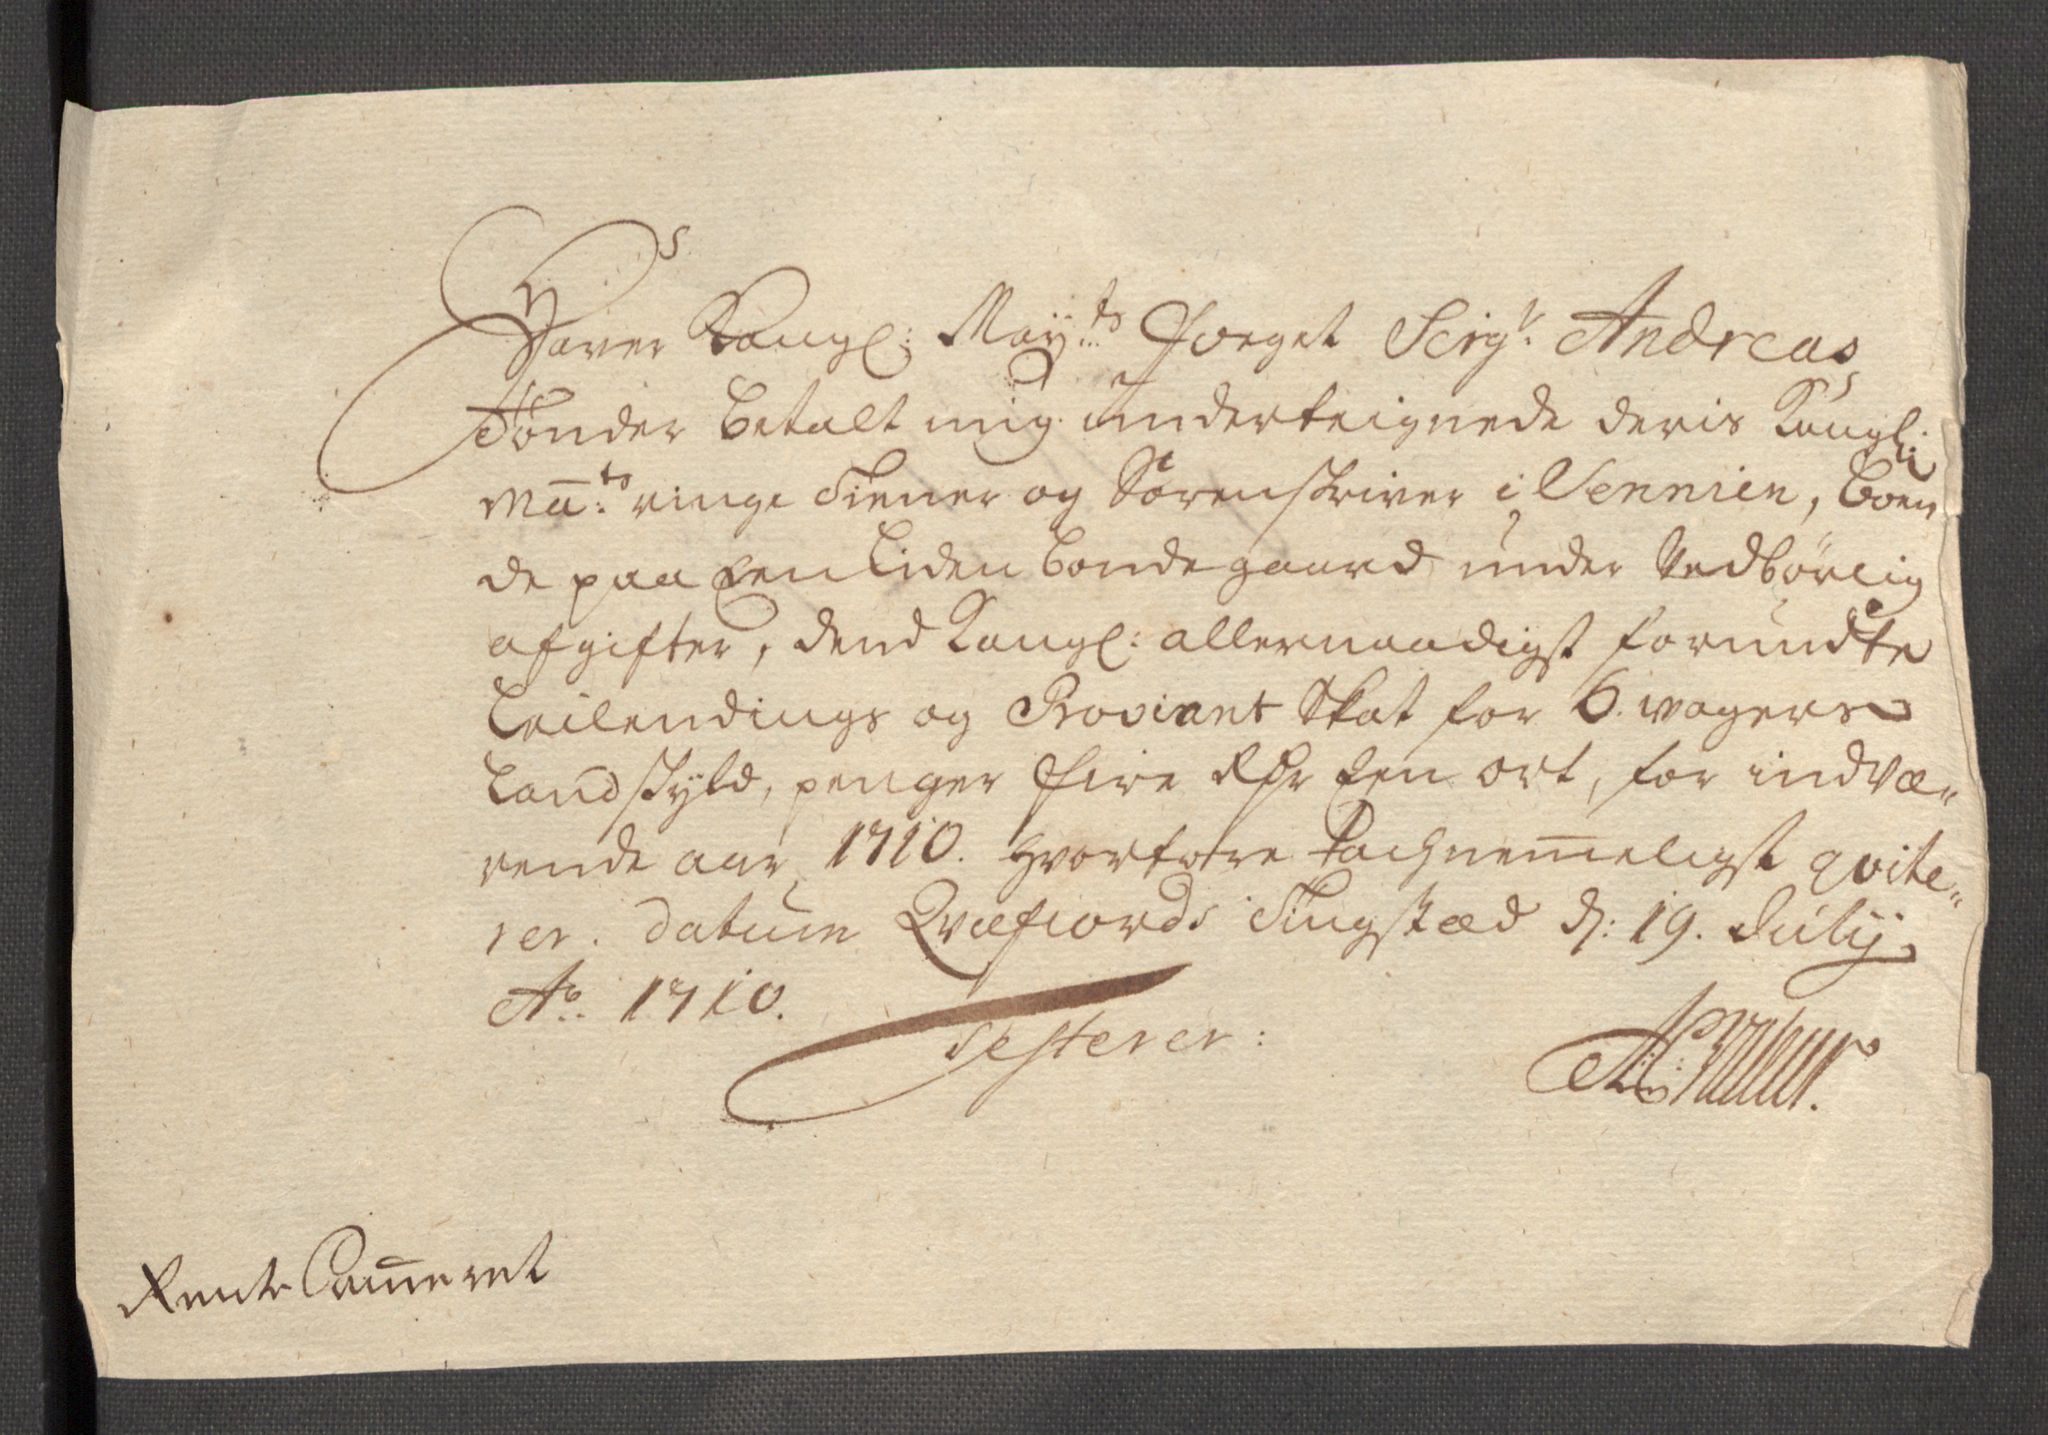 Haver Kongl: May:ts Foeget Seigr. Andreas
Tønder betalt mig underteignede deris Kongl:
Ma:ts ringe Tiener og Sorenskriver i Sennien, boen
de paa Een liden bondegaard under Vedbørlig
afgifter, dend Kongl: allernaadigst forundte
Leilendings og Proviant Skat for 6. wogers
Landskyld, penger Fire Rdr Een ort, for indvæ„
rende aar 1710. hvorfore tachnemeligst qvite„
rer. Datum Qvæfiords Tingstæd d: 19. Julij
Ao. 1710.
Testerer:
Rente Cammeret